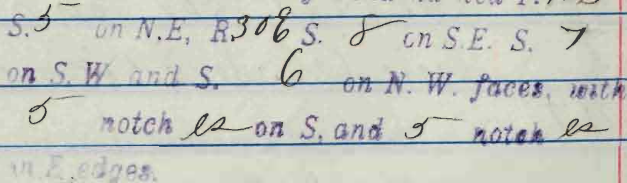 S. 5 on N.E, R 30 E S. 8 on S.E. S. 7
on S. W. and S. 6 on N. W. faces, with
5 notch es on S. and 5 notch es
in E. edges.